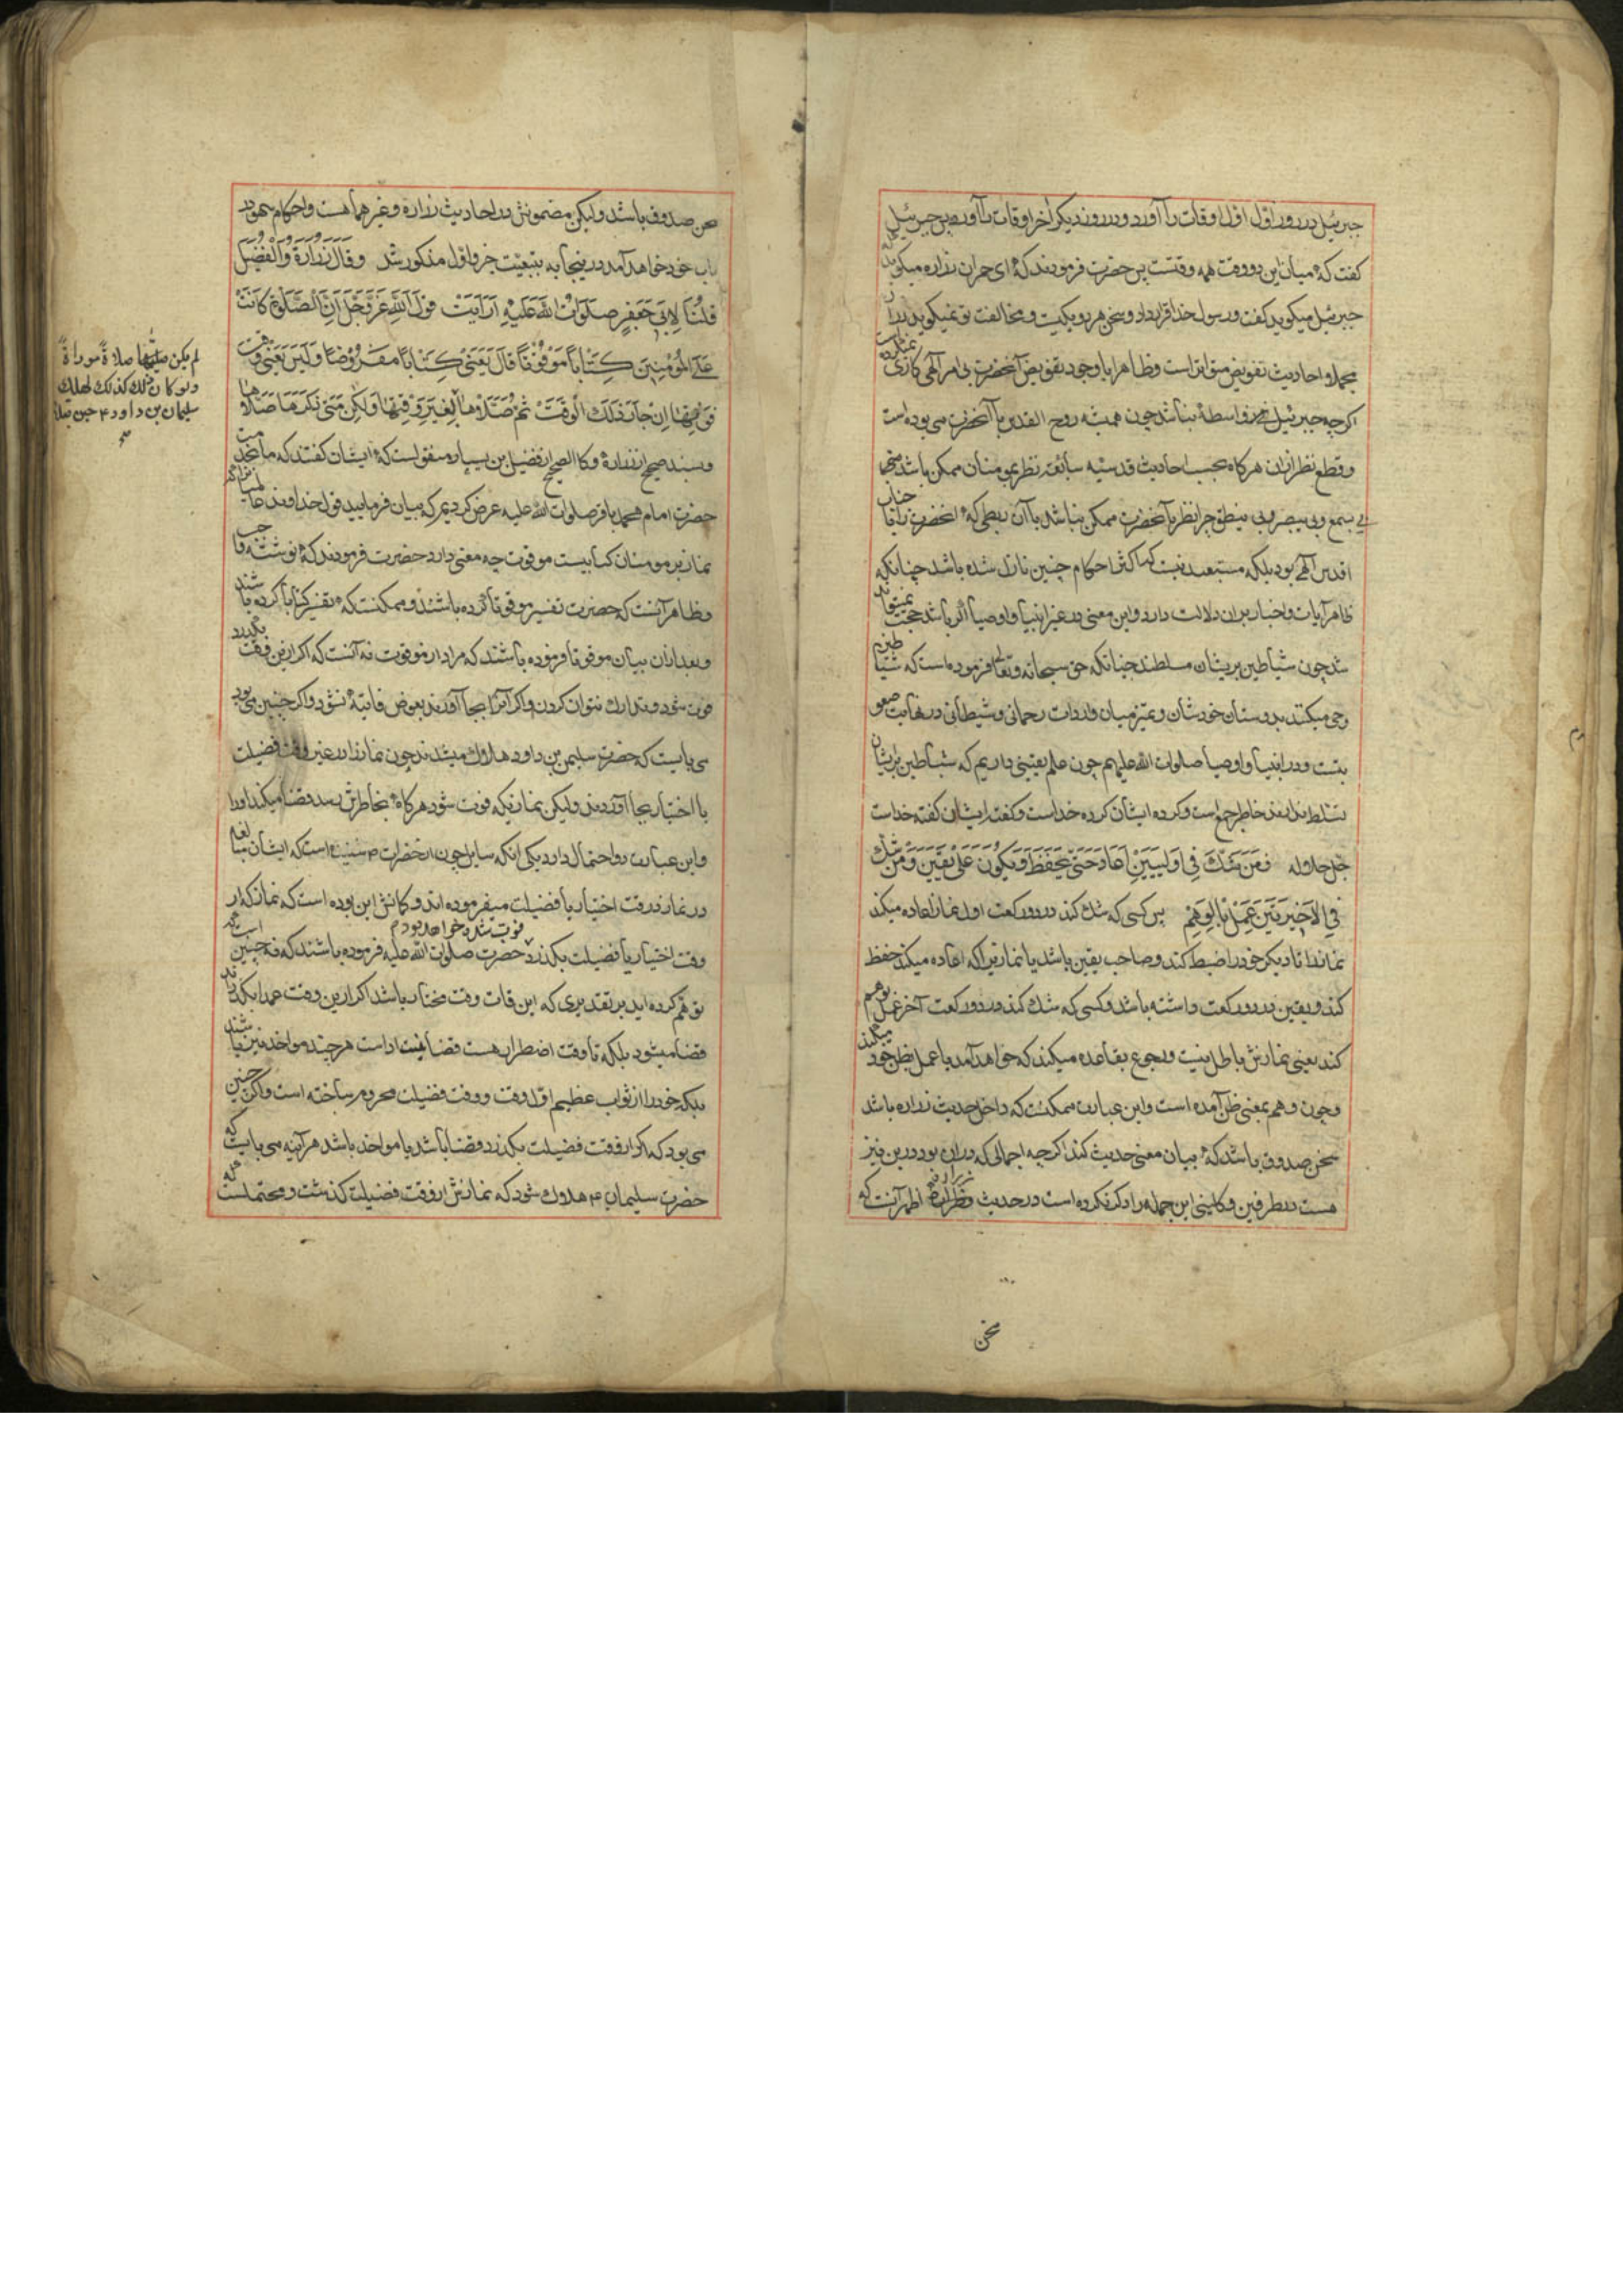 جبرئیل در روز اول اول اوقات را آورد و در روز دیکر آخر اوقات را آورد پس جبرئیل
کفت که میان این دو وقت همه وقتست پس حضرت فرمودند که ای حمران زراره میکوید که
جبرئیل میکوید کفت و رسول خدا قرار داد و سخن هر دو یکیست و مخالفت تو نمیکوید زراره
مجملا احادیث تفویض متواتر است و ظاهرا با وجود تفویض آنحضرت بی امر آلهی کاری نمیکرده است
اکرچه جبرئیل واسطهٔ نباشد چون همیشه روح القدس با آنحضرت می بوده است
و قطع نظر از آن هرکاه بحسب احادیث قدسیه سابقه نظر بمومنان ممکن باشد
بی یسمع و بی یبصر و بی ینطق چرا نظر بآنحضرت ممکن نباشد با آن ربطی که آنحضرت را با جناب
اقدس آلهی بود بلکه مستبعد نیست که اکثر احکام چنین نازل شده باشد چنانکه
ظاهر آیات و اخبار بر آن دلالت دارد و این معنی در غیر انبیا و اوصیا اکر باشد حجت نمیتواند
شد چون شیاطین بر یشان مسلطند چنانکه حق سبحانه و تعالی فرموده است که شیاطین
وحی میکنند بدوستان خودشان و تمیز میان واردات رحمانی و شیطانی در نهایت صعو
بتست و در انبیا و اوصیا صلوات الله علیهم چون علم یقینی داریم که شیاطین بر ایشان
تسلط ندارند خاطر جمع است و کرده ایشان کرده خداست و کفته ایشان کفته خداست
جل جلاله فمن شک فی اولیین اعاد حتی یحفظ و یکون علی یقین و من شک
فی الاخیرتین عمل بالوهم پس کسی که شک کند در دو رکعت اول نماز اعاده میکند
نماز را تا دیکر خود را ضبط کند و صاحب یقین باشد یا نماز تیرا که اعاده میکند حفظ
کند و یقین در دو رکعت داشته باشد و کسی که شک کند در دو رکعت آخر عمل بوهم
کند یعنی نمازش باطل نیست و رجوع بقاعده میکند که خواهد آمد یا عمل بظن خود میکند
و چون وهم بمعنی ظن آمده است و این عبارت ممکنست که داخل حدیث زراره باشد
سخن صدوق باشد که بیان معنی حدیث کند اکرچه اجمالی که در آن بود درین نیز
هست در طرفین و کلینی این جمله را ذکر نکرده است در حدیث زراره اظهر آنست که
سخن
سخن صدوق باشد ولیکن مضمونش در احادیث زراره و غیر هما هست و احکام سهو در
باب خود خواهد آمد در ینجا به تبعیت جزو اول مذکور شد و قال زرارة و الفضیل
قلنا لابی جعفر صلوات الله علیه ارایت قول الله عز و جل ان الصلوة کانت
علی المومنین کتابا موقوتا قال یعنی کتابا مفروضا و لیس یعنی وقت
فوتها ان جاز ذلک الوقت ثم صلاها لم
لم یکن صلاة موداة
و لو کان ذلک کذلک لهلک
سلیمان بن داود ع حین صلا
لغیر وقتها و لکن متی ذکرها صلاها
و بسند صحیح از زراره و کالصحیح از فضیل بن یسار منقولست که ایشان کفتند که ما بخدمت
حضرت امام محمد باقر صلوات الله علیه عرض کردیم که بیان فرمایید قول خداوند عالمیان را که
نماز بر مومنان کتابیست موقوت چه معنی دارد حضرت فرمودند که نوشته واجب
و ظاهر آنست که حضرت تفسیر موقوتا کرده باشند و ممکنست که تفسیر کتابا کرده باشند
و بعد از آن بیان موقوتا فرموده باشند که مراد از موقوت نه آنست که اکر ازین وقت بکذرد
فوت شود و تدارک نتوان کردن و اکر آنرا بجا آورند بعوض فایته نشود و اکر چنین می بود
می بایست که حضرت سلیمن بن داود هلاک میشدند چون نماز را در غیر وقت فضیلت
با اختیار بجا آوردند ولیکن نمازیکه فوت شود هرکاه بخاطرش رسد قضا میکند او را
و این عبارت دو احتمال دارد یکی آنکه سایل چون از حضرات شنیده است که ایشان مبالغه
در نماز در وقت اختیار یا فضیلت میفرموده اند و کمانش این بوده است که نماز که از
وقت اختیار یا فضیلت بکذرد فوت شده خواهد بود حضرت صلوات الله علیه فرموده باشند که نه چنین است که
توهم کرده اید بر تقدیری که این قات وقت مختار باشد اکر ازین وقت عمدا بکذرانند
قضا میشود بلکه تا وقت اضطرار هست قضا نیست اداست هر چند مواخذ نیز باشند
بلکه خود را از ثواب عظیم اول وقت و وقت فضیلت محروم ساخته است و اکر چنین
می بود که اکر از وقت فضیلت بکذرد قضا باشد یا مواخذ باشد هر آینه می بایست که
حضرت سلیمان ع هلاک شود که نمازش از وقت فضیلت کذشت و محتملست که